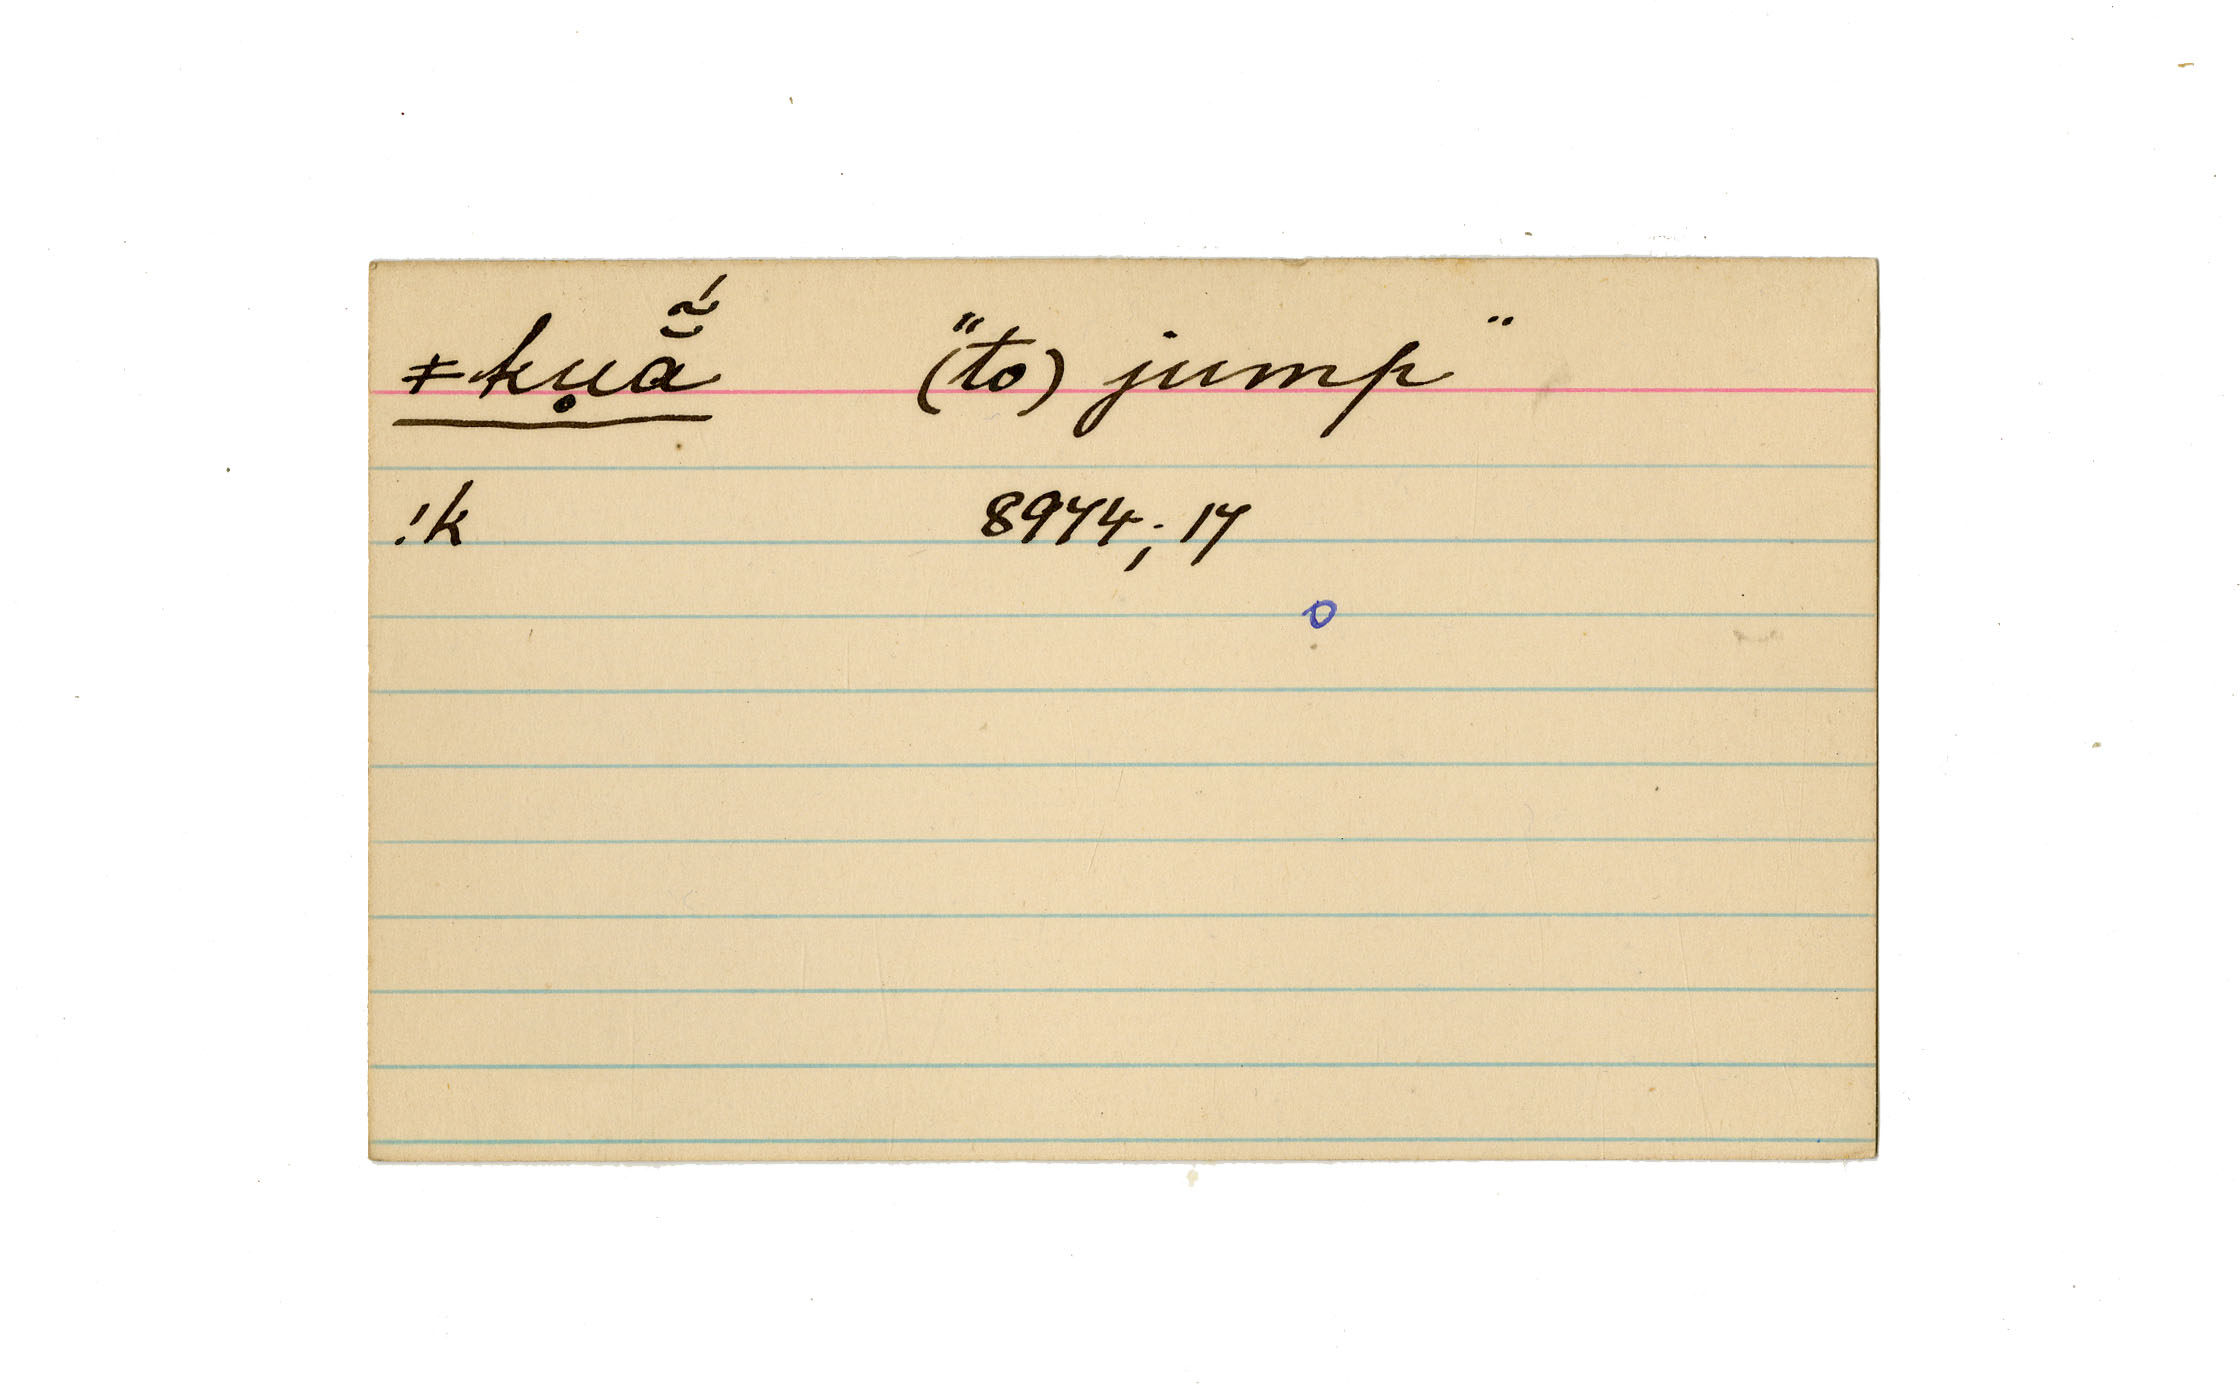 ǂkụã̆́ ("to) jump"
!k 8974; 17
o